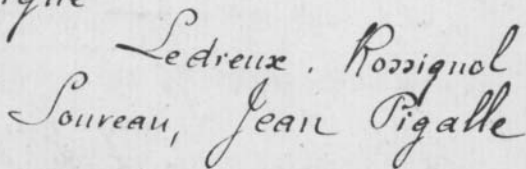 Ledreux. Rossignol
Louveau, Jean Pigalle